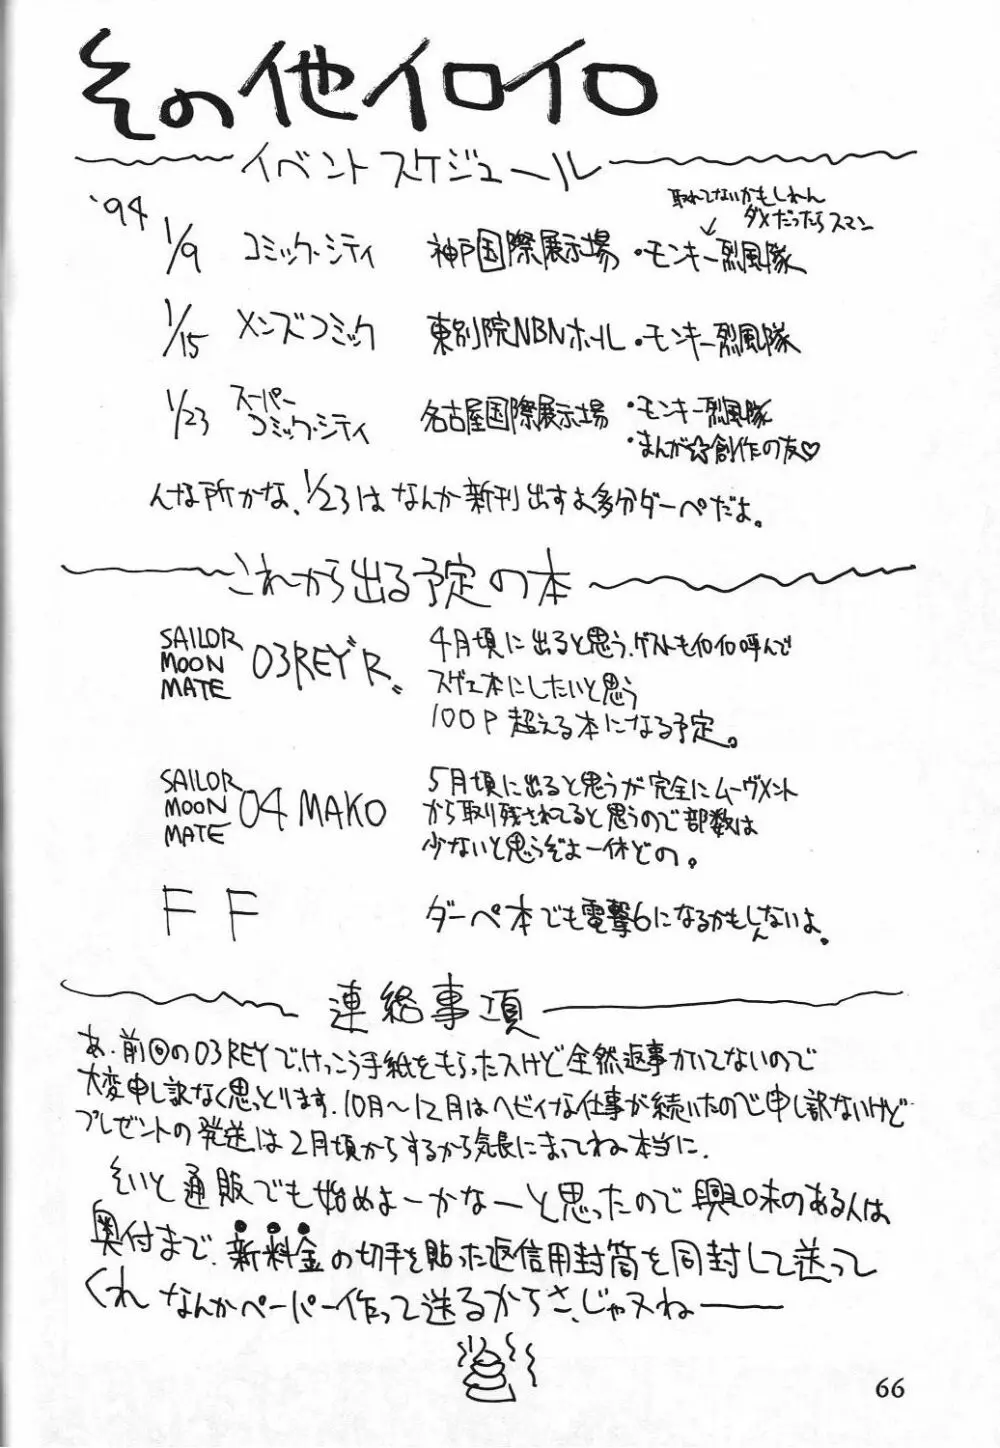 その他イロイロ
イベントスケジュール
'94
取れてないかもしれん
ダメだったらスマン
1/9 コミック・シティ 神戸国際展示場 ・モンキー烈風隊
1/15 メンズコミック 東別院NBNホール ・モンキー烈風隊
1/23 スーパー
コミック・シティ 名古屋国際展示場 ・モンキー烈風隊
・まんが☆創作の友♡
んな所かな、1/23はなんか新刊出すよ多分ダーペだよ。
これから出る予定の本
SAILOR
MOON
MATE
03REY"R"
4月頃に出ると思う、ゲストもイロイロ呼んで
スゲェ本にしたいと思う
100P超える本になる予定。
SAILOR
MOON
MATE
04 MAKO
5月頃に出ると思うが完全にムーヴメント
から取り残されてると思うので部数は
少ないと思うぞよ一休どの。
FF
ダーペ本でも電撃6になるかもしんないよ。
連絡事項
あ、前回の03REYでけっこう手紙をもらったスけど全然返事かいてないので
大変申し訳なく思っとります、10月〜12月はヘビィな仕事が続いたので申し訳ないけど
プレゼントの発送は2月頃からするから気長にまってね本当に、
そいと通販でも始めよーかなーと思ったので興味のある人は
奥付まで、新料金の切手を貼った返信用封筒を同封して送って
くれ なんかペーパー作って送るからさ、じゃヌねー
66